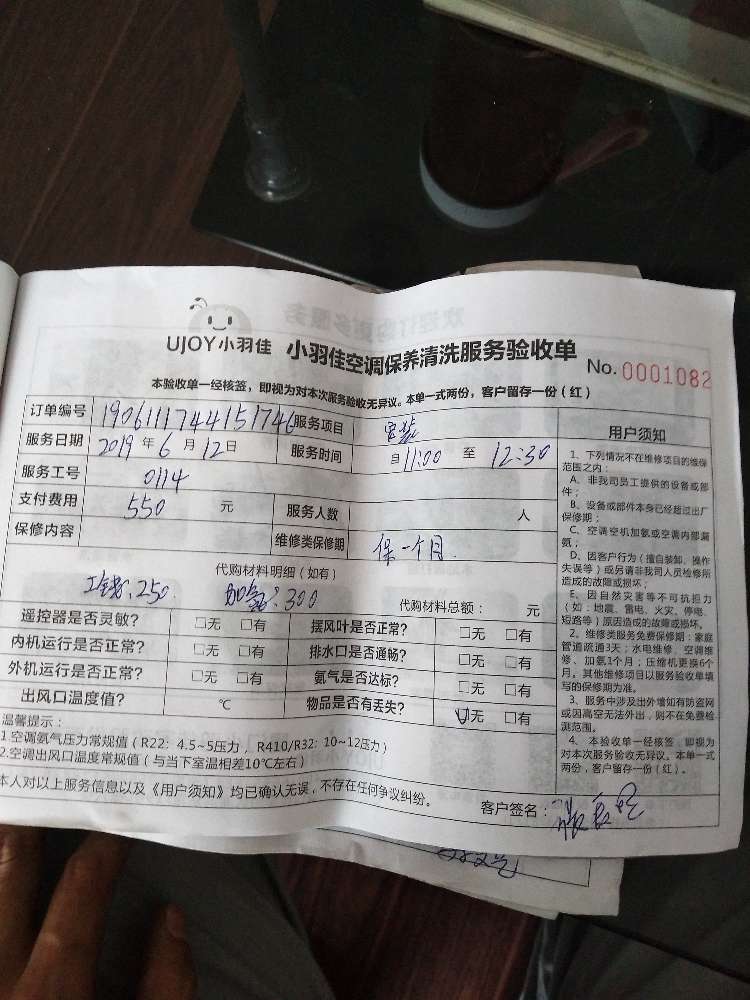 UJOY小羽佳 小羽佳空调保养清洗服务验收单 No. 0001082
本验收单一经核签，即视为对本次服务验收无异议。本单一式两份，客户留存一份（红）
订单编号 1906111744151746 服务项目
服务日期 2019 年 6 月 12 日 服务时间 自 11:00 至 12:30
服务工号 0114
支付费用 550 元 服务人数 人
保修内容 维修类保修期 保一个月
代购材料明细（如有）
工钱:250 加氟:300 代购材料总额： 元
遥控器是否灵敏？ □无 □有 摆风叶是否正常？ □无 □有
内机运行是否正常？ □无 □有 排水口是否通畅？ □无 □有
外机运行是否正常？ □无 □有 氨气是否达标？ □无 □有
出风口温度值？ ℃ 物品是否有丢失？ □无 □有
温馨提示：
1.空调氨气压力常规值（R22：4.5~5压力，R410/R32：10~12压力）
2.空调出风口温度常规值（与当下室温相差10℃左右）
本人对以上服务信息以及《用户须知》均已确认无误，不存在任何争议纠纷。 客户签名：
用户须知
1、下列情况不在维修项目的维保
范围之内：
A、非我司员工提供的设备或部
件；
B、设备或部件本身已经超过出厂
保修期；
C、空调空机加氨或空调内部漏
氨；
D、因客户行为（擅自装卸、操作
失误等）或另请非我司人员检修所
造成的故障或损坏；
E、因自然灾害等不可抗拒力
（如：地震、雷电、火灾、停电、
短路等）原因造成的故障或损坏。
2、维修类服务免费保修期：家庭
管道疏通3天；水电维修、空调维
修、加氨1个月；压缩机更换6个
月。其他维修项目以服务验收单填
写的保修期为准。
3、服务中涉及出外增如有防盗网
或因高空无法外出，则不在免费检
测范围。
4、本验收单一经核签，即视为
对本次服务验收无异议。本单一式
两份，客户留存一份（红）。